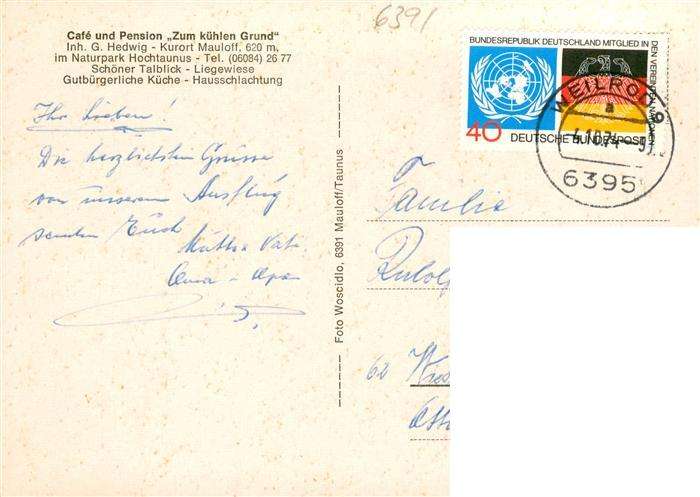 6391
Café und Pension „Zum kühlen Grund"
Inh. G. Hedwig - Kurort Mauloff, 620 m,
im Naturpark Hochtaunus - Tel. (06084) 26 77
Schöner Talblick - Liegewiese
Gutbürgerliche Küche - Hausschlachtung
Ihr Lieben!
Die herzlichsten Grüsse
von unserem Ausflug
senden Euch
Mutti + Vati
Oma - Opa
Foto Woscidlo, 6391 Mauloff/Taunus
BUNDESREPUBLIK DEUTSCHLAND MITGLIED IN
DEN VEREINTEN NATIONEN
40 DEUTSCHE BUNDESPOST
WEILROD
a
4.10.74
6395
Familie
Rudolf
62